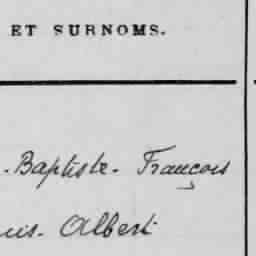 ET SURNOMS.
-Baptiste- François
us- Albert